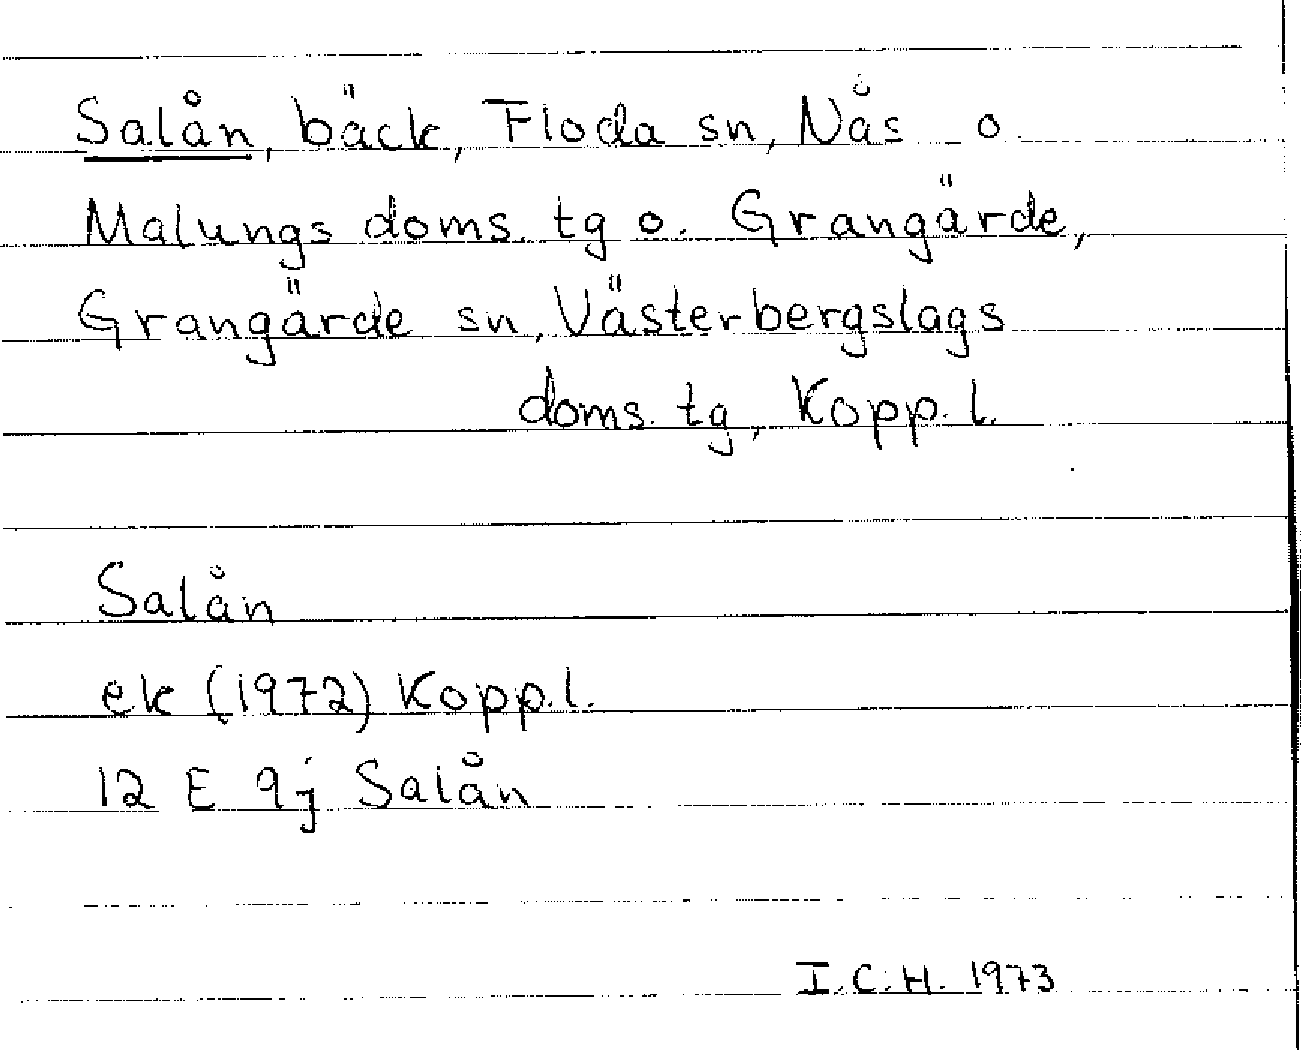 Salån, bäck, Floda sn, Nås o.
Malungs doms. tg o. Grangärde,
Grangärde sn, Västerbergslags
doms. tg, Kopp. l.
Salån
ek (1972) Kopp. l.
12 E 9j Salån
I.C.H. 1973